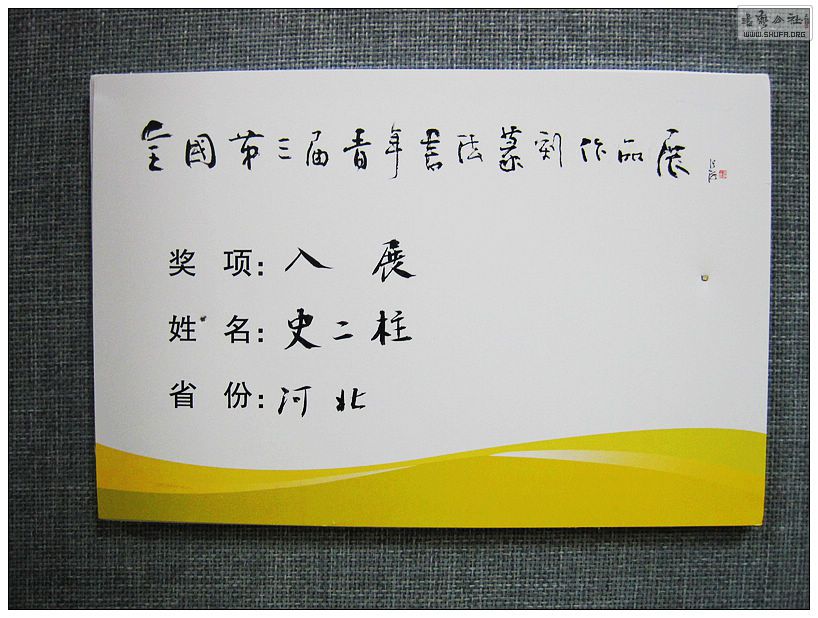 WWW.SHUFA.ORG
全國第三届青年書法篆刻作品展
奖 项：入 展
姓 名：史二柱
省 份：河北